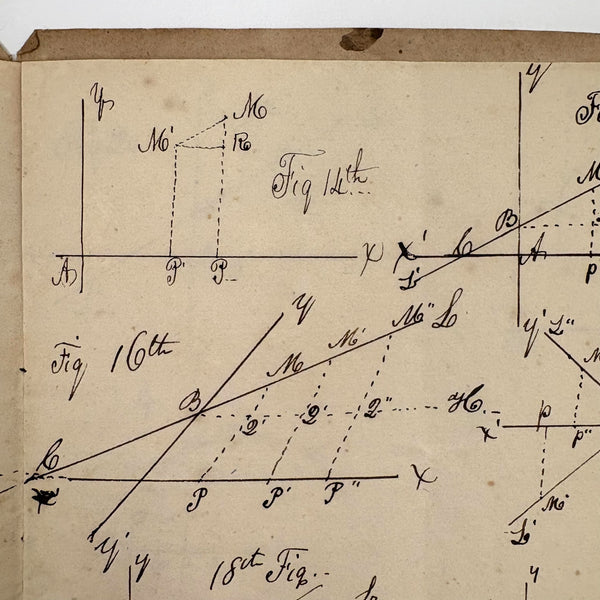 y
M
M'
R
Fig 14th
A
P'
P
X
y
M
B
X'
C
A
P
L'
Fig 16th
y
M
M'
M"
L
B
Q'
Q'
Q"
H
C
P
P'
P"
X
y'
y'
L"
M
x'
p
p"
M'
L'
y
18th Fig
L
y